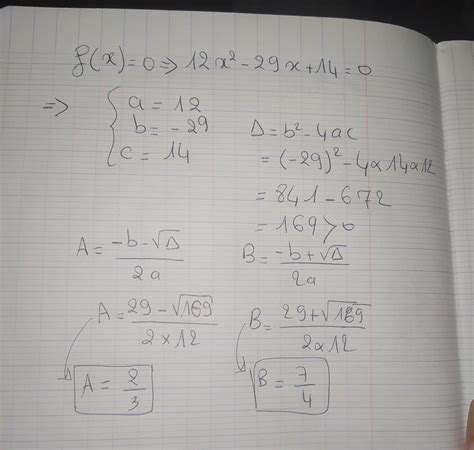 f(x) = 0 => 12x² - 29x + 14 = 0
=> { a = 12
b = -29
c = 14
Δ = b² - 4ac
= (-29)² - 4×14×12
= 841 - 672
= 169 > 0
A = (-b - √Δ) / 2a
A = (29 - √169) / 2×12
A = 2/3
B = (-b + √Δ) / 2a
B = (29 + √169) / 2×12
B = 7/4